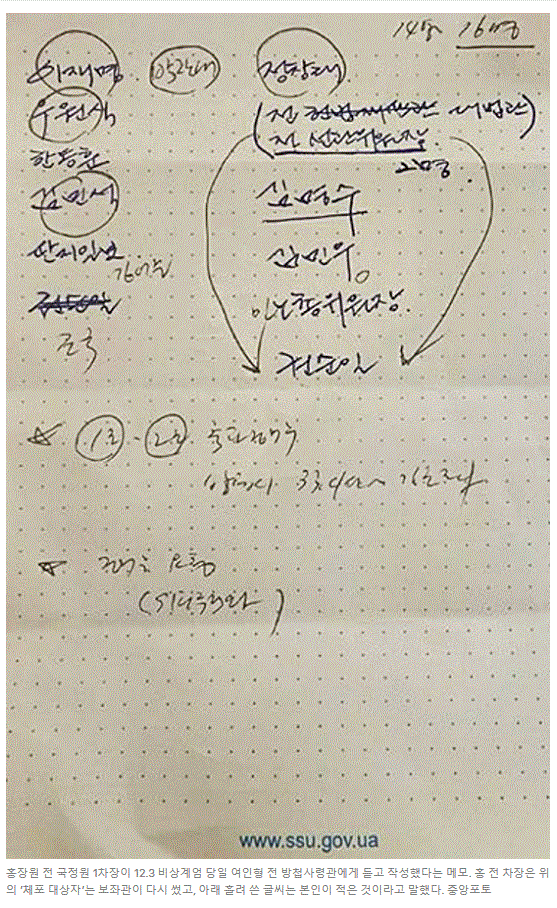 14명 16명
이재명
박찬대
정청래
우원식
(전 헌법재판관 대법관)
전 선관위원장
한동훈
김민석
김명수
딴지일보
김어준
김민웅
조국
민노총위원장
권순일
1조 - 2조 축차 검거 후
방첩사
검거 요청
(위치추적)
www.ssu.gov.ua
홍장원 전 국정원 1차장이 12.3 비상계엄 당일 여인형 전 방첩사령관에게 듣고 작성했다는 메모. 홍 전 차장은 위
의 '체포 대상자'는 보좌관이 다시 썼고, 아래 흘려 쓴 글씨는 본인이 적은 것이라고 말했다. 중앙포토